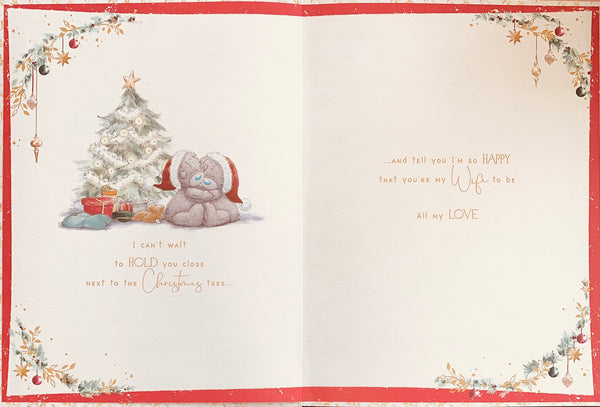 I can't wait
to HOLD you close
next to the Christmas tree...
...and tell you I'm so HAPPY
that you're my Wife to be
All my LOVE